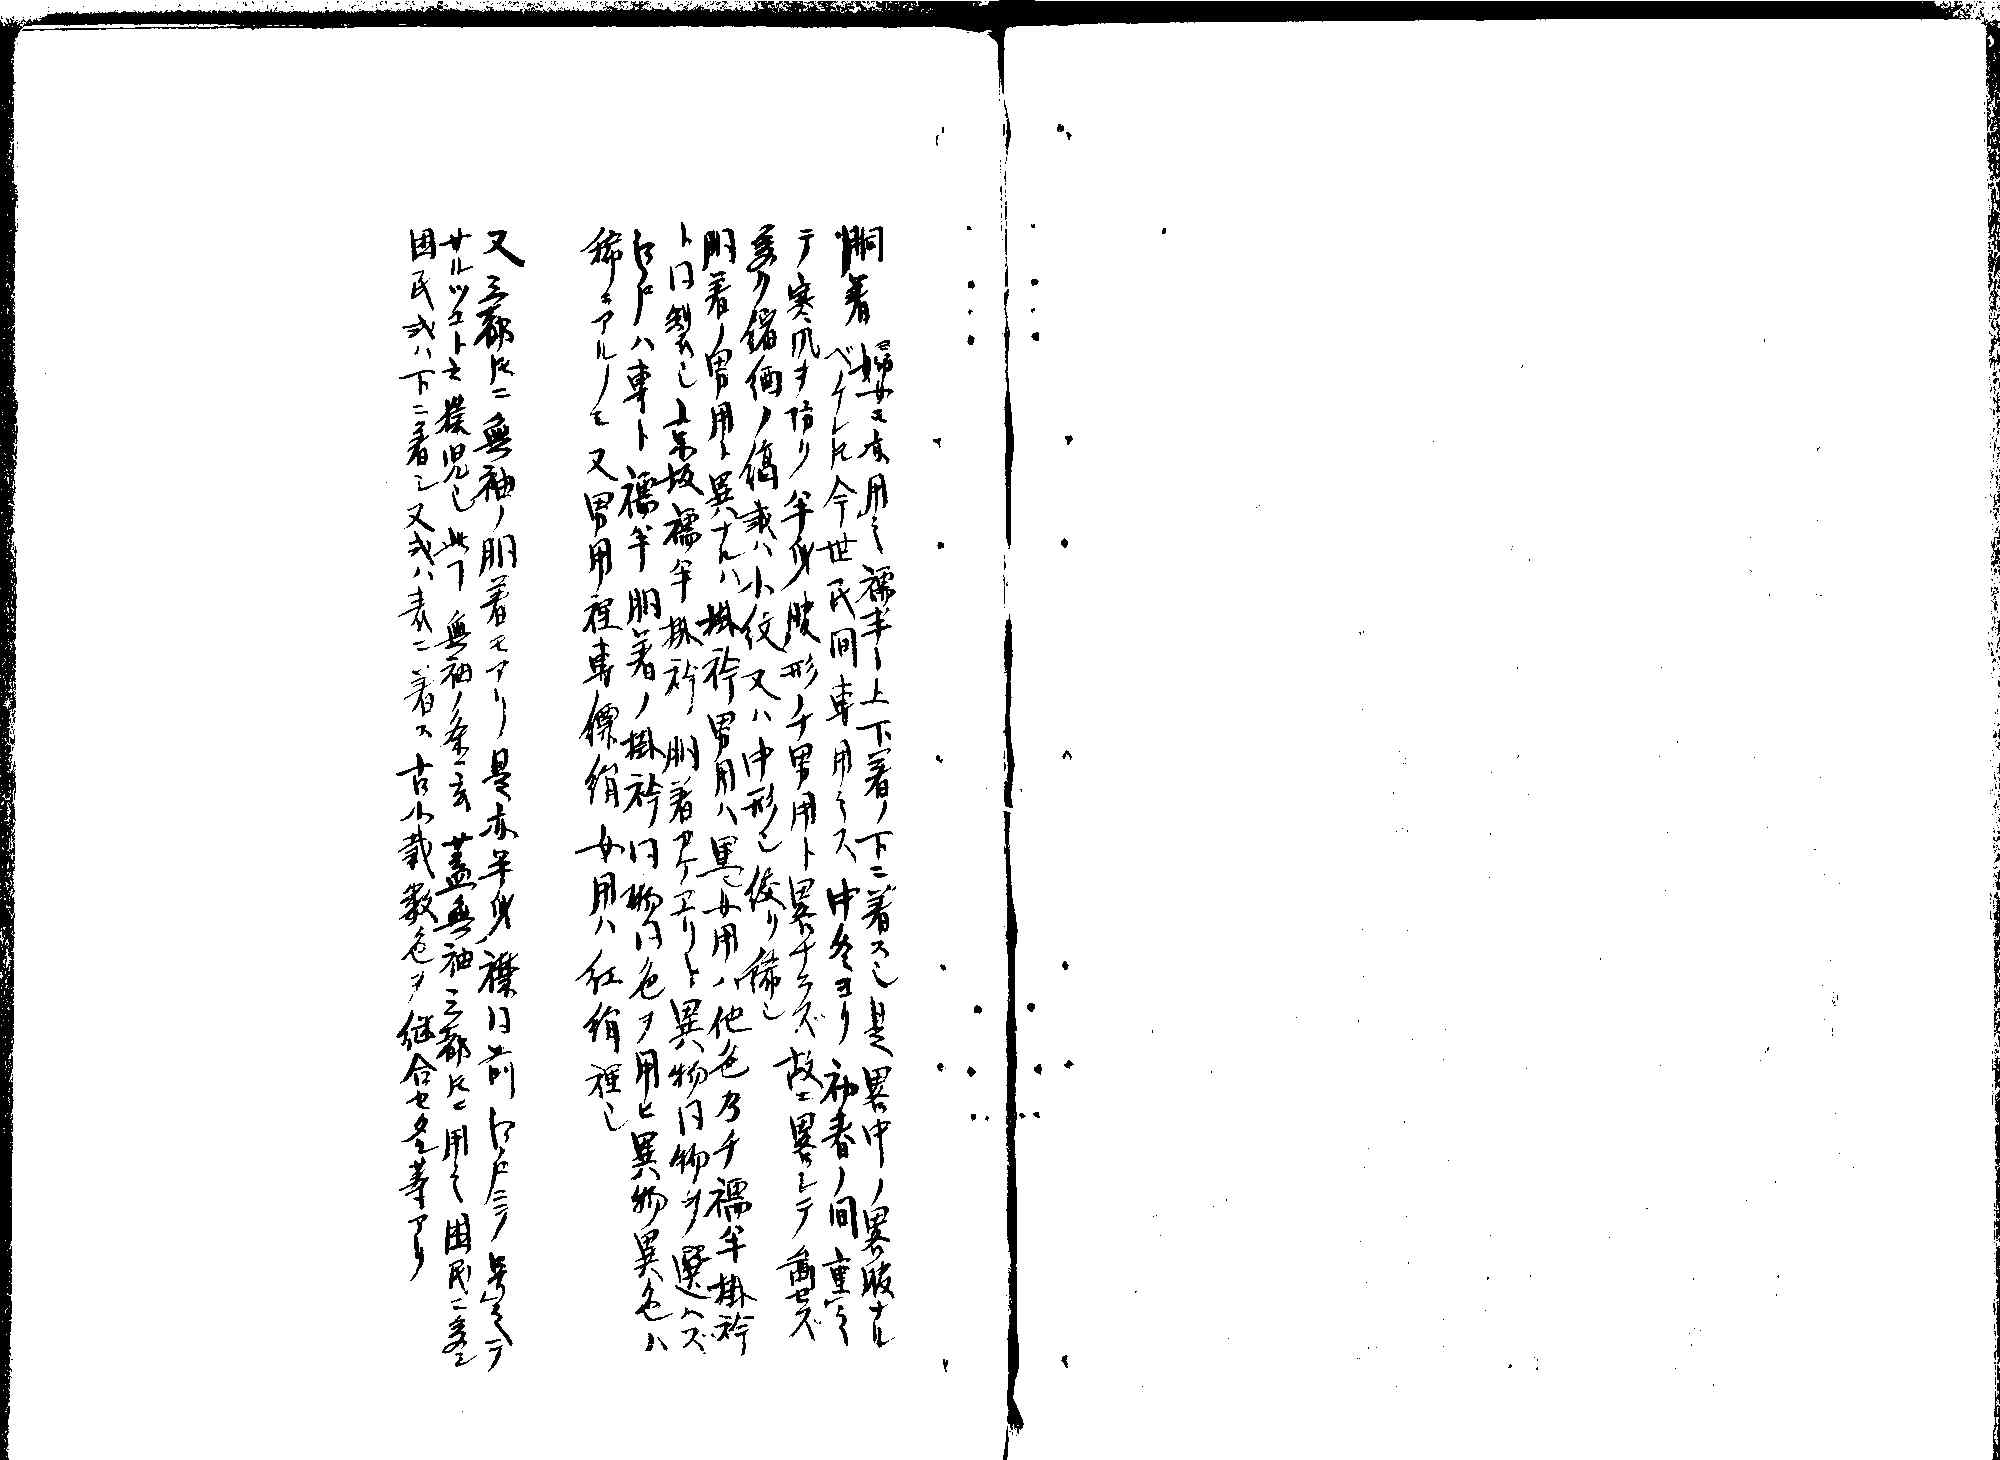 胴着 婦女モ亦用之襦半ト上下着ノ下ニ着ス也是畧中ノ畧服ナル
ベケレ𪜈今世民間専用之ス中冬ヨリ初春ノ間重之
テ寒風ヲ防グ半身服形ノチ男用ト異ナラズ故ニ畧シテ画セズ
表ノ縮緬ノ縞或ハ小紋又ハ中形也絞リ稀也
胴着ノ男用ト異ナルハ掛衿男用ハ黒也女用ハ他色乃チ襦半掛衿
ト同製也京坂襦半掛衿ノ胴着ヱリト異物同物ヲ選ハズ
江戸ハ専ト襦半胴着ノ掛衿同物同色ヲ用ヒ異物異色ハ
稀ニアルノミ又男用裡専縹絹女用ハ紅絹裡也
又三都𪜈ニ無袖ノ胴着モアリ是亦半身襟同前江戸ニテ号之テ
サルツコト云猿児也此下無袖ノ条ニ云蓋無袖三都𪜈ニ用之困民ニ多シ
困民或ハ下ニ着シ又或ハ表ニ着ス古小裁数色ヲ継合セタル等アリ